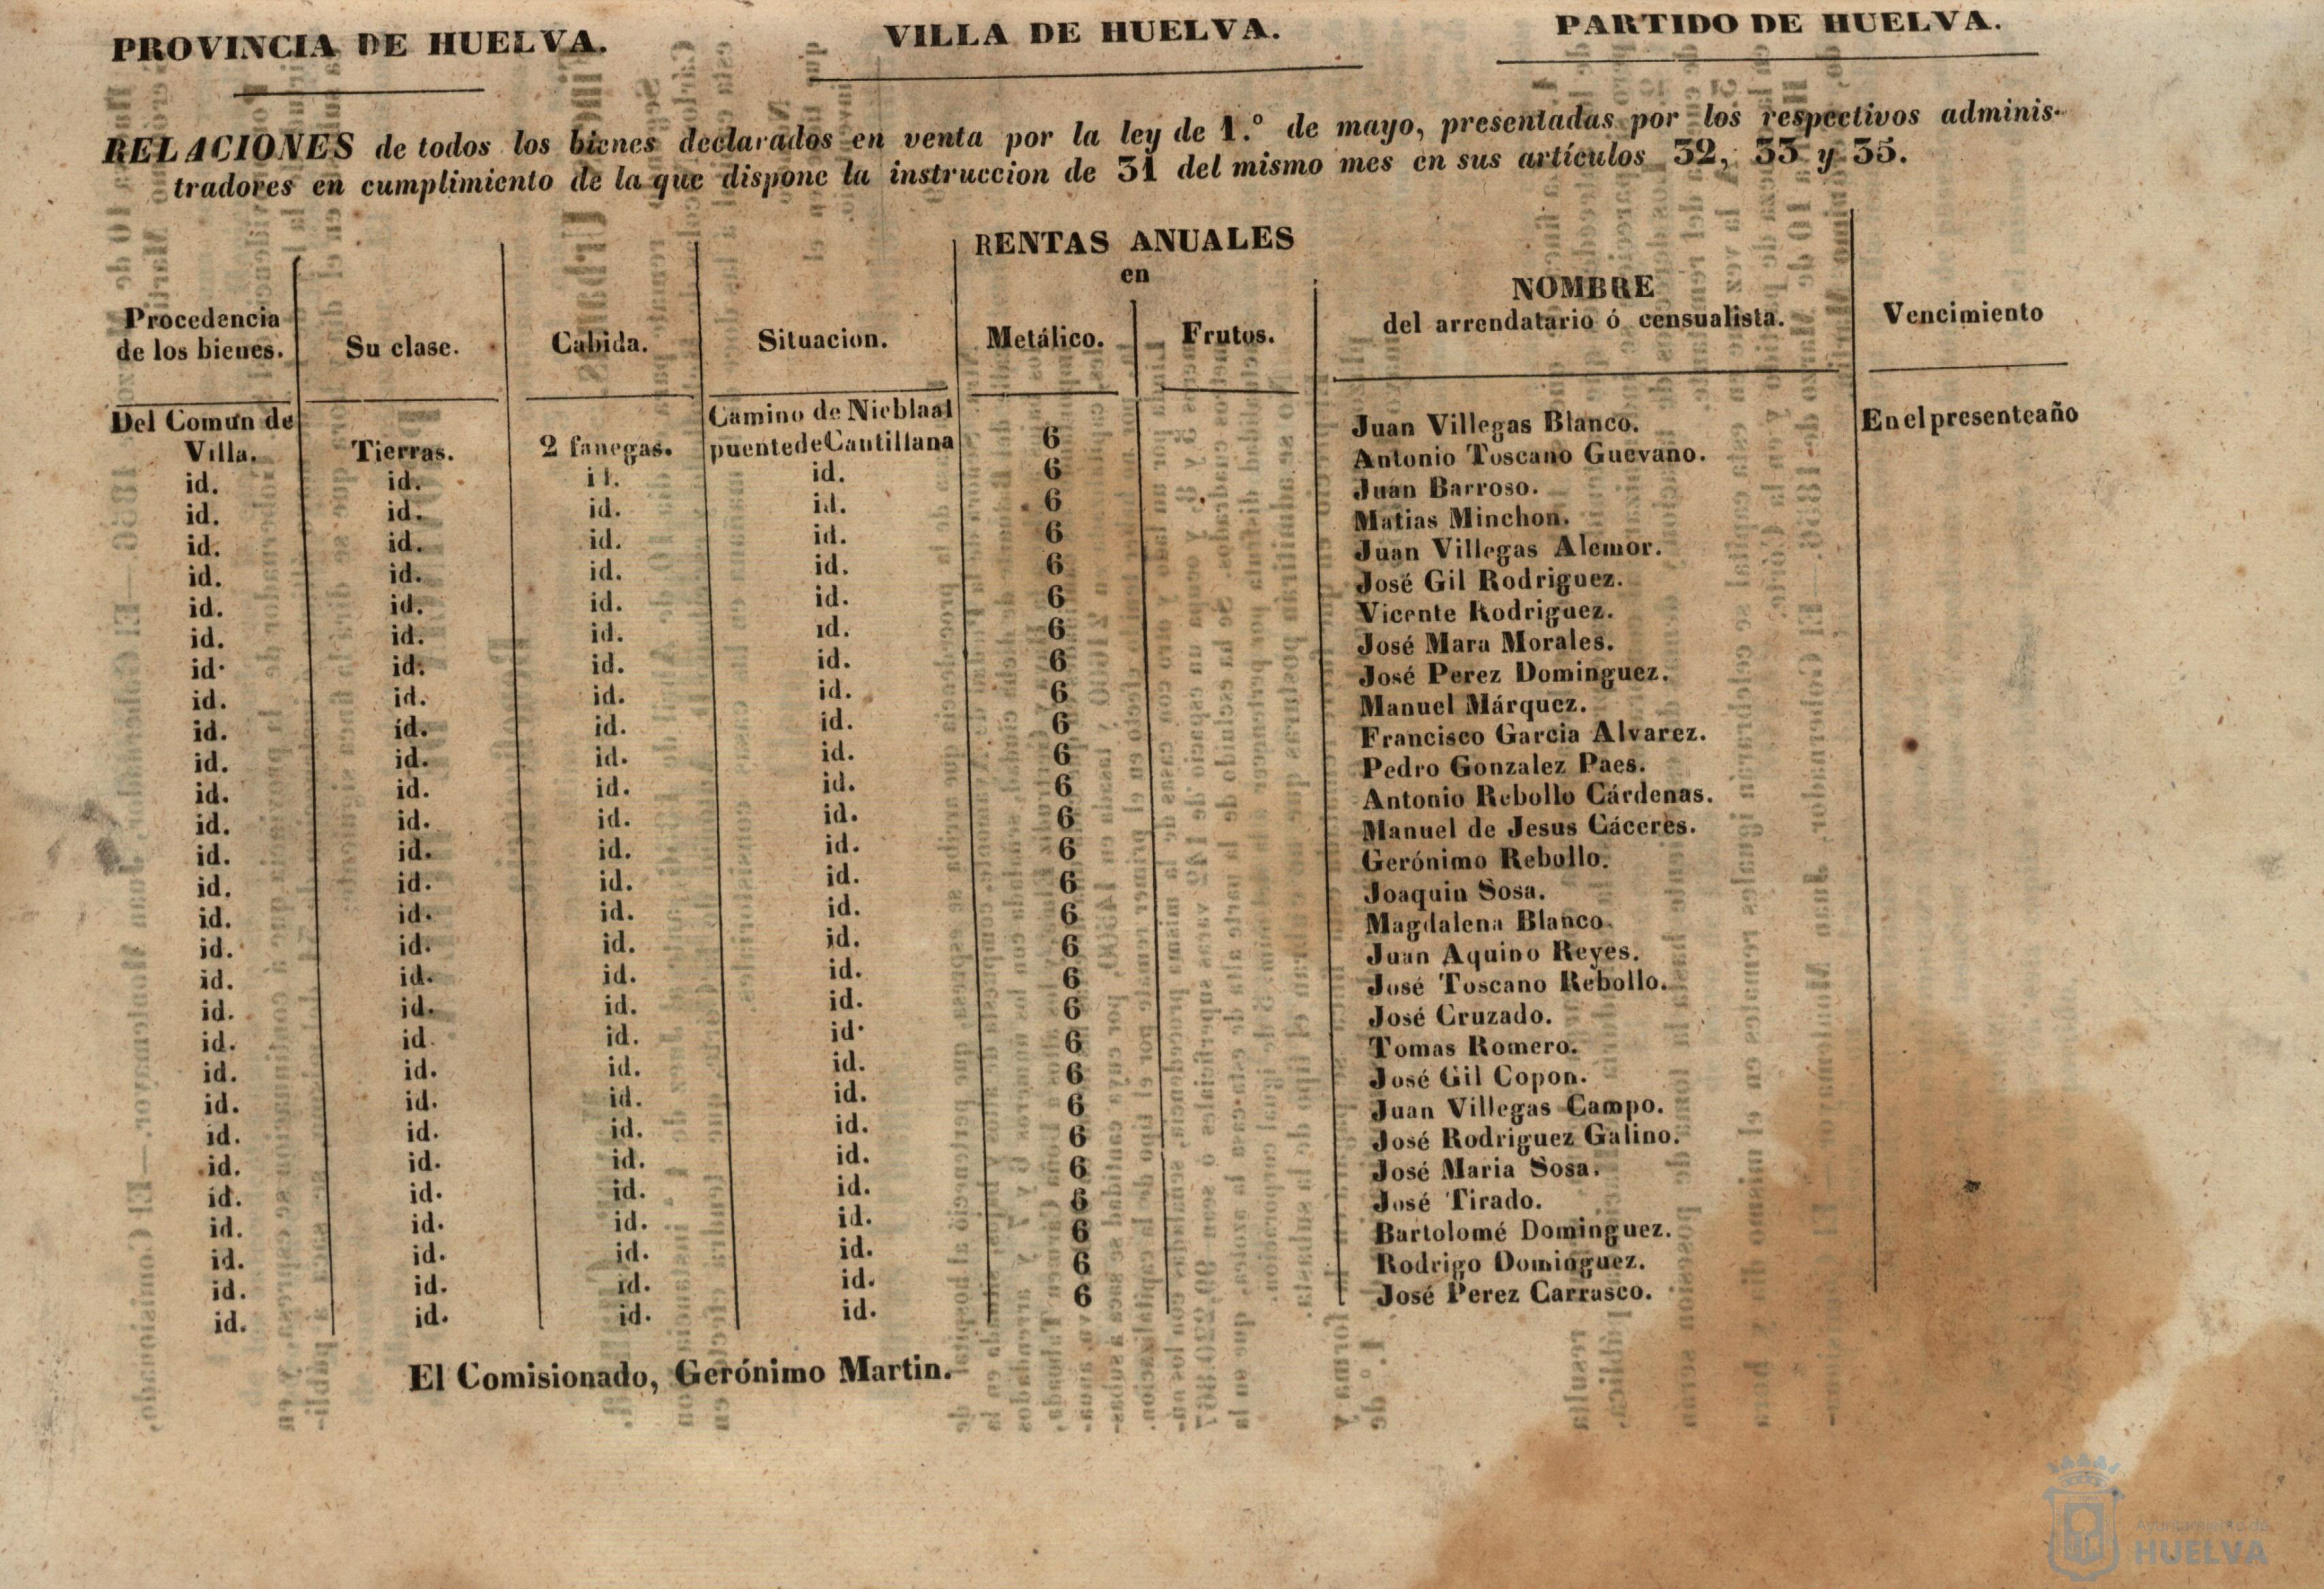 PROVINCIA DE HUELVA. VILLA DE HUELVA. PARTIDO DE HUELVA.
RELACIONES de todos los bienes declarados en venta por la ley de 1.º de mayo, presentadas por los respectivos adminis-
tradores en cumplimiento de la que dispone la instruccion de 31 del mismo mes en sus artículos 32, 33 y 35.
RENTAS ANUALES
en
NOMBRE
Procedencia
de los bienes. Su clase. Cabida. Situacion. Metálico. Frutos. del arrendatario ó censualista. Vencimiento
Del Comun de Camino de Niebla al Juan Villegas Blanco. En el presente año
Villa. Tierras. 2 fanegas. puente de Cantillana 6
id. id. id. id. 6 Antonio Toscano Guevano.
id. id. id. id. 6 Juan Barroso.
id. id. id. id. 6 Matias Minchon.
id. id. id. id. 6 Juan Villegas Alemor.
id. id. id. id. 6 José Gil Rodriguez.
id. id. id. id. 6 Vicente Rodriguez.
id. id. id. id. 6 José Mara Morales.
id. id. id. id. 6 José Perez Dominguez.
id. id. id. id. 6 Manuel Márquez.
id. id. id. id. 6 Francisco Garcia Alvarez.
id. id. id. id. 6 Pedro Gonzalez Paes.
id. id. id. id. 6 Antonio Rebollo Cárdenas.
id. id. id. id. 6 Manuel de Jesus Cáceres.
id. id. id. id. 6 Gerónimo Rebollo.
id. id. id. id. 6 Joaquin Sosa.
id. id. id. id. 6 Magdalena Blanco.
id. id. id. id. 6 Juan Aquino Reyes.
id. id. id. id. 6 José Toscano Rebollo.
id. id. id. id. 6 José Cruzado.
id. id. id. id. 6 Tomas Romero.
id. id. id. id. 6 José Gil Copon.
id. id. id. id. 6 Juan Villegas Campo.
id. id. id. id. 6 José Rodriguez Galino.
id. id. id. id. 6 José Maria Sosa.
id. id. id. id. 6 José Tirado.
id. id. id. id. 6 Bartolomé Dominguez.
id. id. id. id. 6 Rodrigo Dominguez.
id. id. id. id. José Perez Carrasco.
El Comisionado, Gerónimo Martin.
Ayuntamiento de
HUELVA